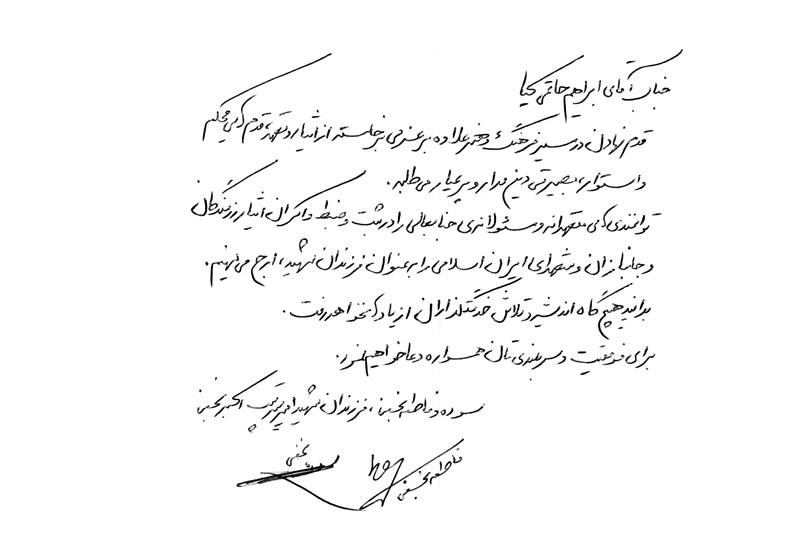 جناب آقای ابراهیم حاتمی کیا
قدم نهادن در مسیر فرهنگ و هنر علاوه بر عزمی برخاسته از ایثار و تعهد، قدم هایی محکم
و استوار، بصیرتی دین مدار و پرعیار می طلبد.
توانمندی های متعهدانه و مسئولانه ی جنابعالی را در ثبت و ضبط و اکران ایثار رزمندگان
و جانبازان و شهدای ایران اسلامی را به عنوان فرزندان شهید، ارج می نهیم.
بدانید هیچ گاه اندیشه و تلاش خدمتگذاران از یادها نخواهد رفت.
برای موفقیت و سربلندی تان همواره دعا خواهیم نمود.
سوده و فاطمه نجفی، فرزندان شهید امیر سرتیپ اکبر نجفی
نجفی
فاطمه نجفی